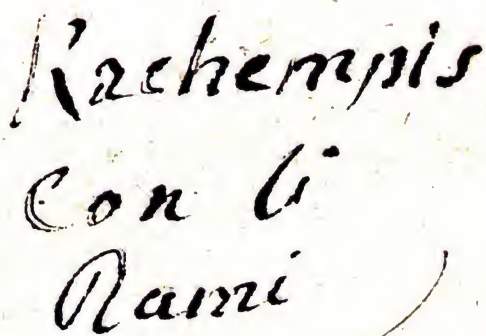 Krchempis
con li
Rami